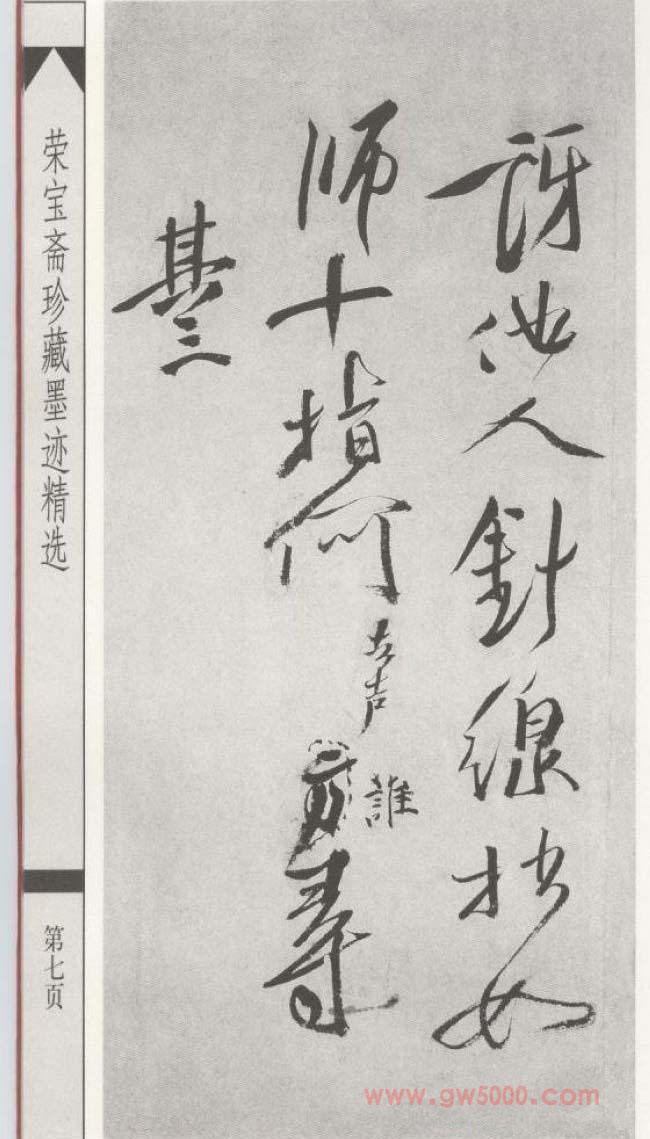 訝他人針線拙
师十指何
誰
其三
荣宝斋珍藏墨迹精选
第七页
www.gw5000.com